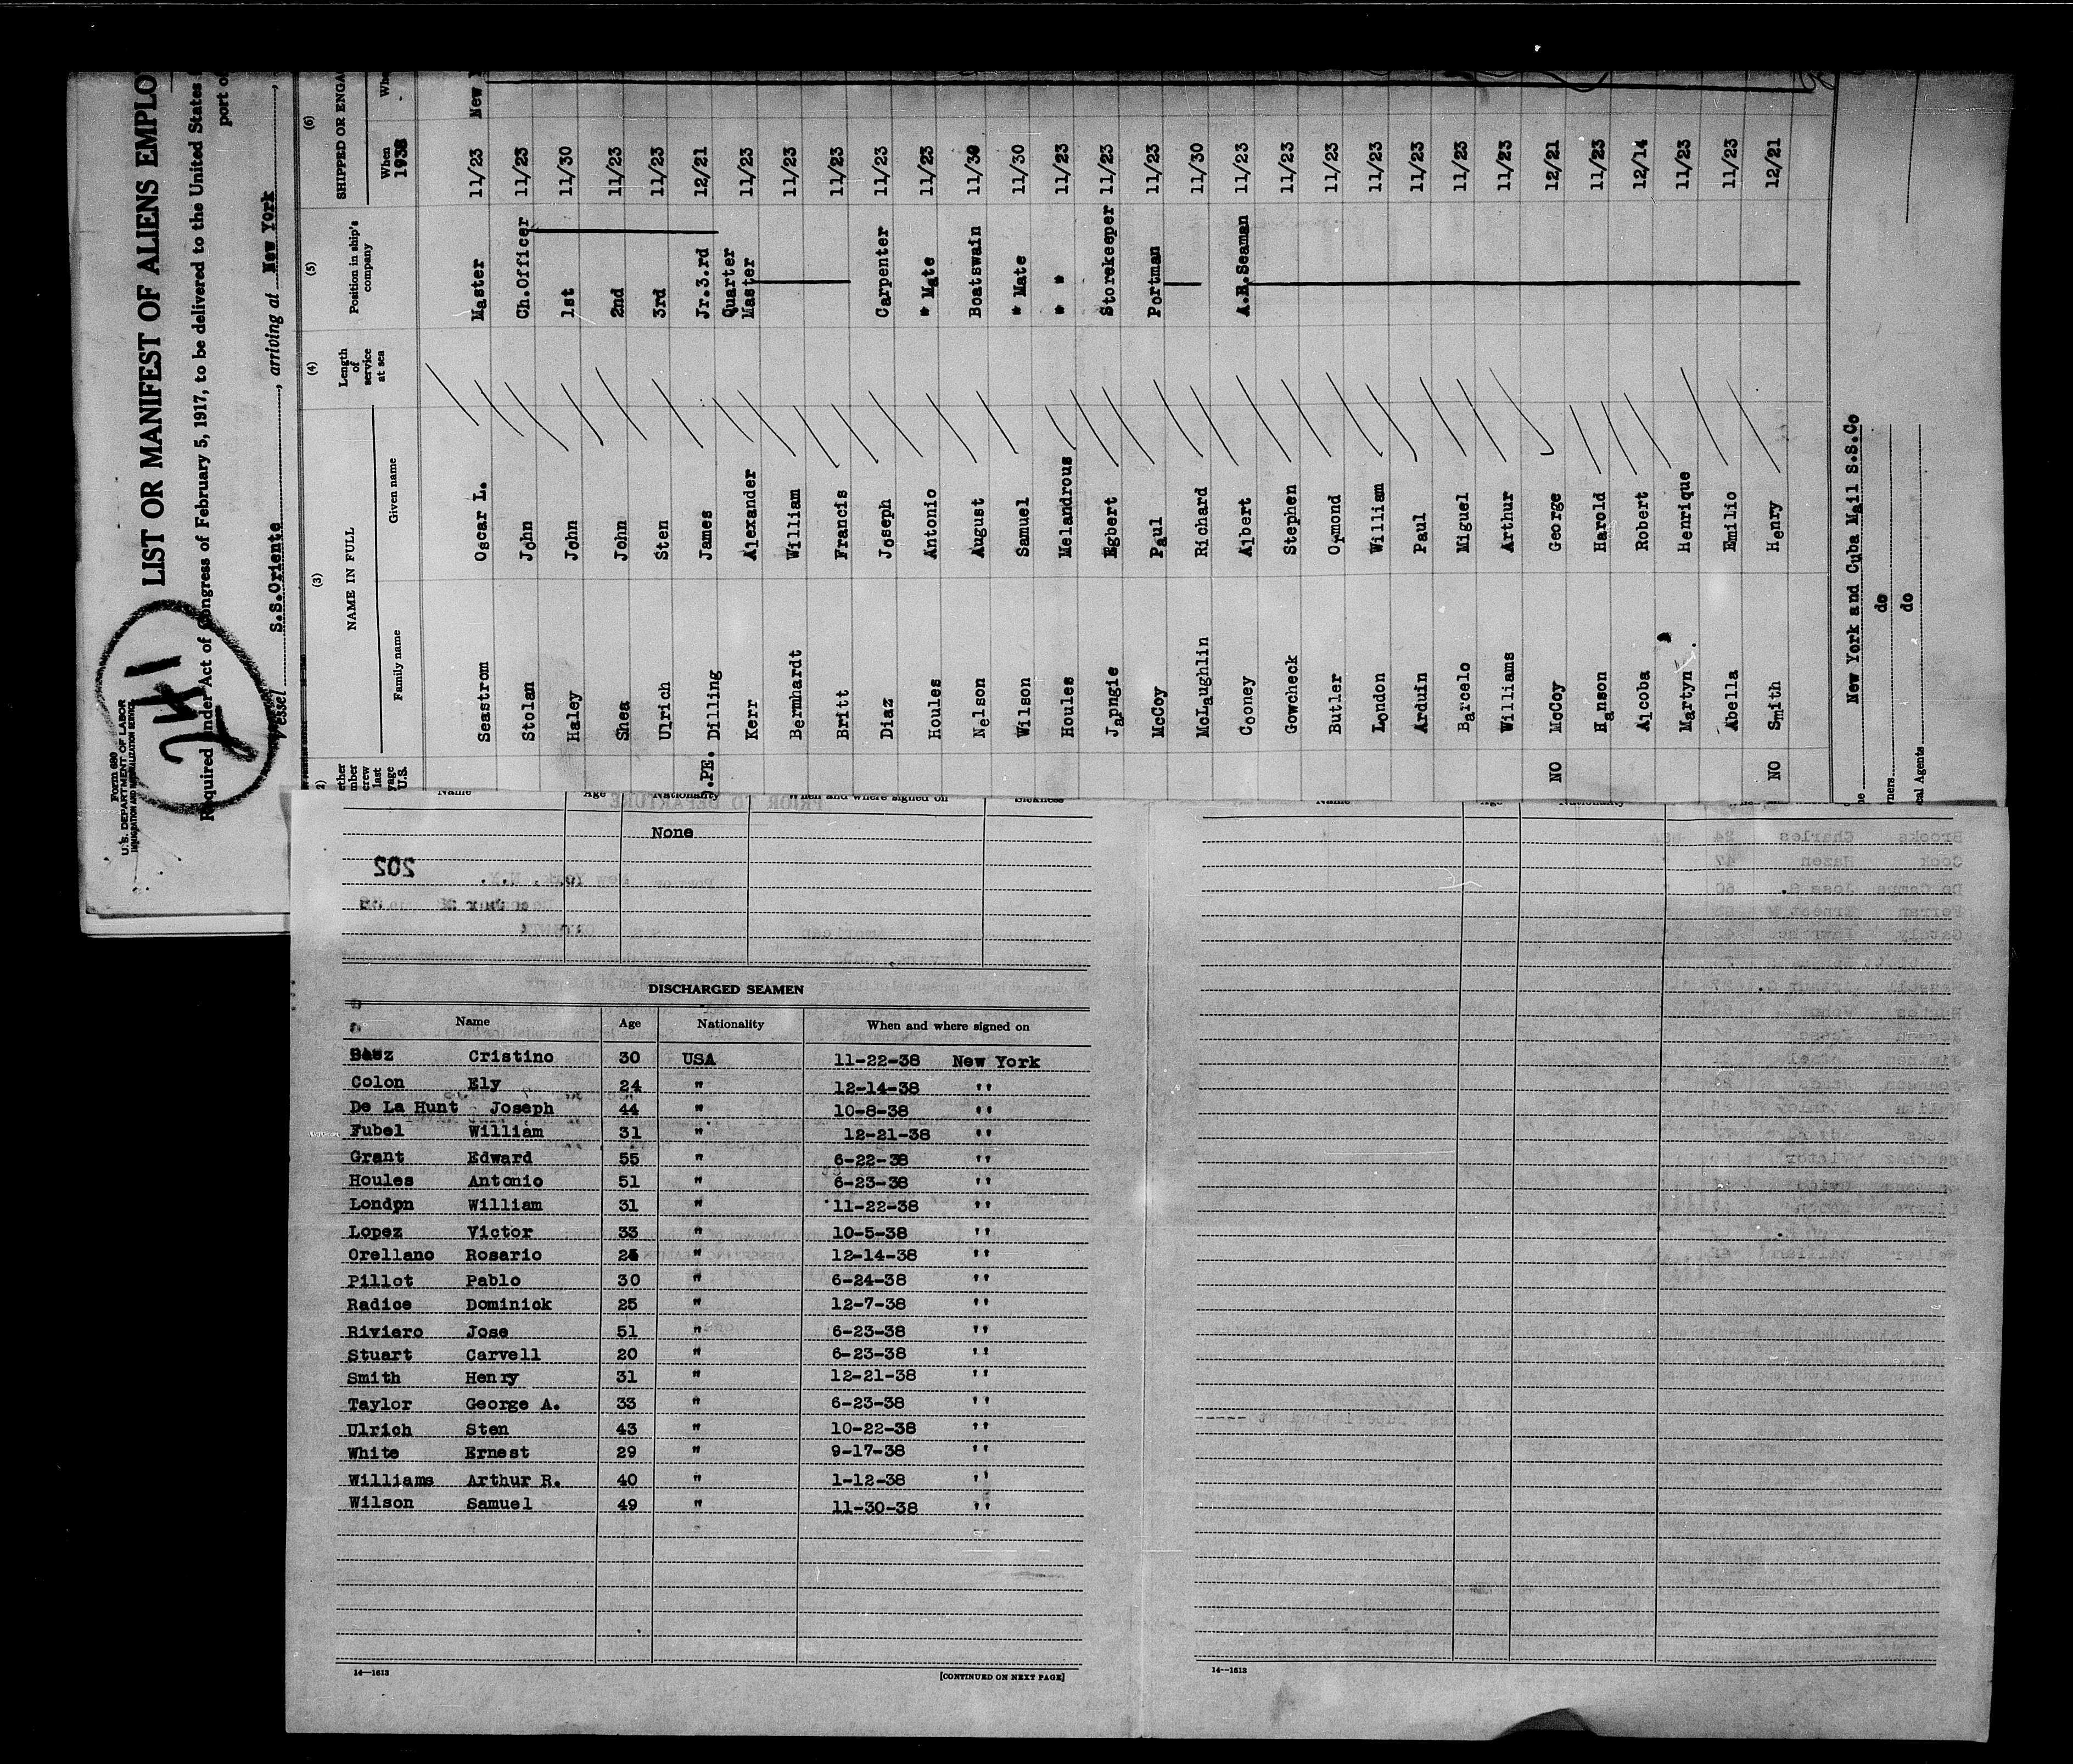 Form 680
U.S. DEPARTMENT OF LABOR
IMMIGRATION AND NATURALIZATION SERVICE
241
LIST OR MANIFEST OF ALIENS EMPLO
Required under Act of Congress of February 5, 1917, to be delivered to the United States
port o
Vessel S.S.Oriente, arriving at New York
(3) (4) (5) (6)
NAME IN FULL Length of service at sea Position in ship's company SHIPPED OR ENGA
Family name Given name When 1938
Seastrom Oscar L. Master 11/23 New
Stolan John Ch.Officer 11/23
Haley John 1st 11/30
Shea John 2nd 11/23
Ulrich Sten 3rd 11/23
.PE. Dilling James Jr.3.rd 12/21
Kerr Alexander Quarter Master 11/23
Bermhardt William 11/23
Britt Francis 11/23
Diaz Joseph Carpenter 11/23
Houles Antonio " Mate 11/23
Nelson August Boatswain 11/30
Wilson Samuel " Mate 11/30
Houles Melandrous " " 11/23
Japngie Egbert Storekeeper 11/23
McCoy Paul Portman 11/23
McLaughlin Richard 11/30
Cooney Albert A.B.Seaman 11/23
Gowcheck Stephen 11/23
Butler Ormond 11/23
London William 11/23
Arduin Paul 11/23
Barcelo Miguel 11/23
Williams Arthur 11/23
NO McCoy George 12/21
Hanson Harold 11/23
Alcoba Robert 12/14
Martyn Henrique 11/23
Abella Emilio 11/23
NO Smith Henry 12/21
New York and Cuba Mail S.S.Co
do
cal Agents do
Name Age Nationality When and where signed on Sickness
None
202
DISCHARGED SEAMEN
Name Age Nationality When and where signed on
Baez Cristino 30 USA 11-22-38 New York
Colon Ely 24 " 12-14-38 ''
De La Hunt Joseph 44 " 10-8-38 ''
Fubel William 31 " 12-21-38 ''
Grant Edward 55 " 6-22-38 ''
Houles Antonio 51 " 6-23-38 ''
London William 31 " 11-22-38 ''
Lopez Victor 33 " 10-5-38 ''
Orellano Rosario 25 " 12-14-38 ''
Pillot Pablo 30 " 6-24-38 ''
Radice Dominick 25 " 12-7-38 ''
Riviero Jose 51 " 6-23-38 ''
Stuart Carvell 20 " 6-23-38 ''
Smith Henry 31 " 12-21-38 ''
Taylor George A. 33 " 6-23-38 ''
Ulrich Sten 43 " 10-22-38 ''
White Ernest 29 " 9-17-38 ''
Williams Arthur R. 40 " 1-12-38 ''
Wilson Samuel 49 " 11-30-38 ''
14—1613 [CONTINUED ON NEXT PAGE]
14—1613